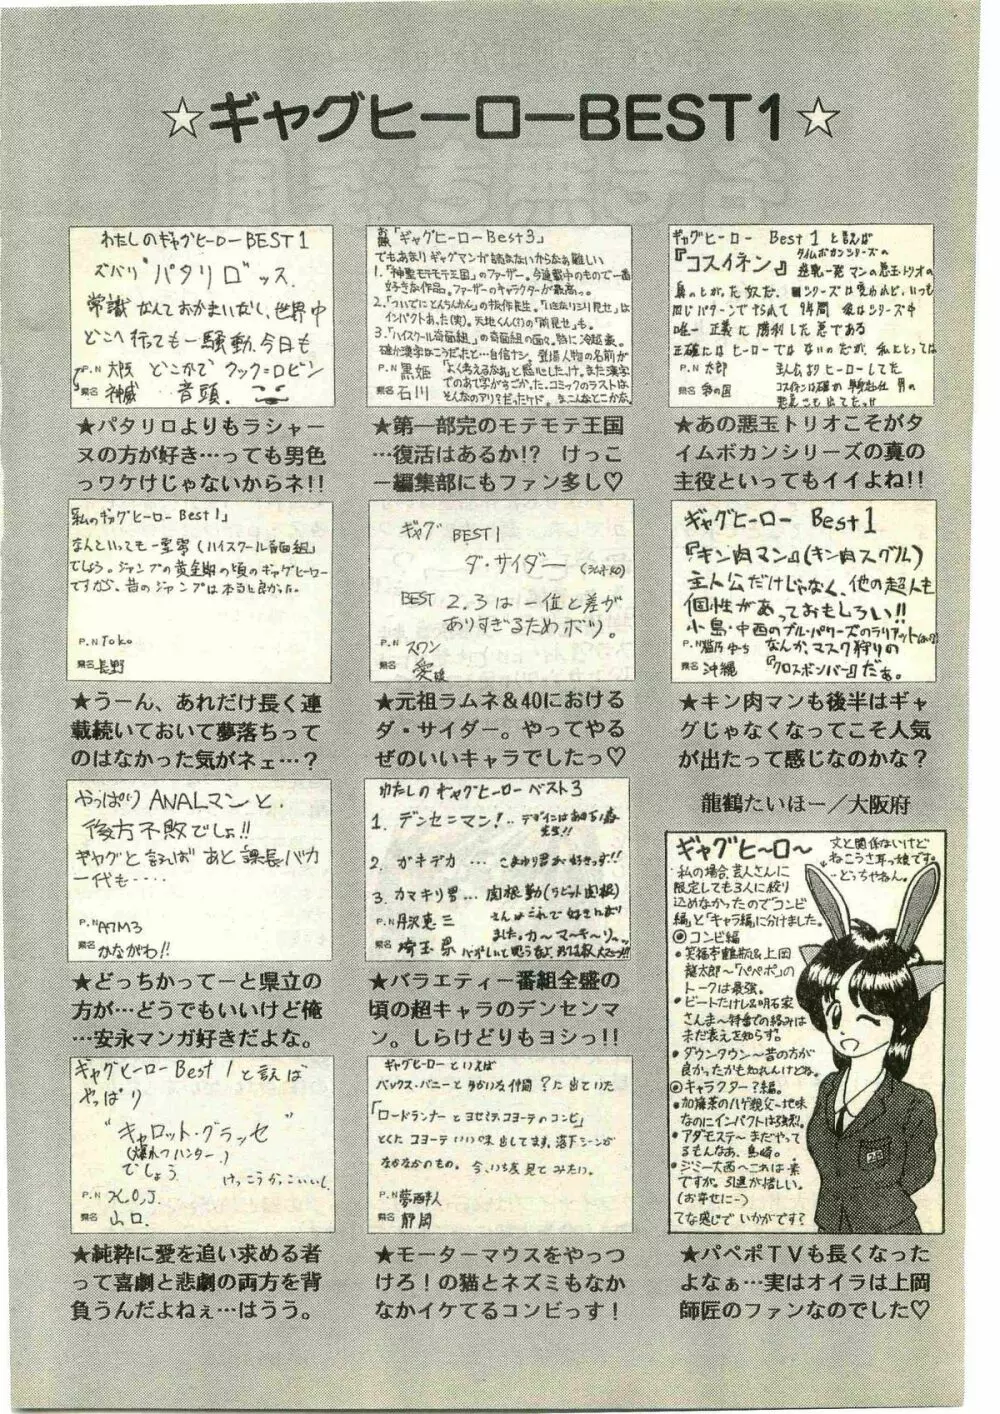 ☆ギャグヒーローBEST1☆
わたしのギャグヒーローBEST1
ズバリ"パタリロ"ッス.
常識なんておかまいなし、世界中
どこへ行っても一騒動、今日も
どこかで クックロビン
音頭.
P.N 大阪
県名 神威
★パタリロよりもラシャー
ヌの方が好き…っても男色
っワケけじゃないからネ!!
「ギャグヒーローBest3」
でもあまりギャグマンガ読まないからなぁ難しい
1.「神聖モテモテ王国」のファーザー。今連載中のもので一番
好きな作品。ファーザーのキャラクターが最高っ。
2.「ついでにとんちんかん」の抜作先生。「いきなり尻見せ」は
インパクトあった(笑)。天地くん(!)の「前見せ」も。
3.「ハイスクール奇面組」の奇面組の面々。特に冷越豪。
確か漢字はこうだったと…自信ナシ。登場人物の名前が
「よく考えるなぁ」と感心したっけ。また漢字
でのあて字がすごかった。コミックのラストは
そんなのアリ?だったケド。
P.N 黒姫
県名 石川
★第一部完のモテモテ王国
…復活はあるか!? けっこ
ー編集部にもファン多し♡
ギャグヒーロー Best 1 と言えば
『コスイネン』タイムボカンシリーズの
逆転一発マンの悪玉トリオの
同じパターンでやられて9年間 後はシリーズ中
唯一 正義に勝利した悪である
正確にはヒーローではないのだが、私にとっては
主人公よりヒーローしてた
P.N 太郎
県名
★あの悪玉トリオこそがタ
イムボカンシリーズの真の
主役といってもイイよね!!
「私のギャグヒーロー Best 1」
なんといっても一堂零(ハイスクール奇面組)
でしょう。ジャンプの黄金期の頃のギャグヒーロー
ですから、昔のジャンプは本当に良かった。
P.N Toko
県名 長野
★うーん、あれだけ長く連
載続いておいて夢落ちって
のはなかった気がネェ…?
ギャグ BEST1
ダ・サイダー (ラムネ40)
BEST 2.3は一位と差が
ありすぎるためボツ。
P.N スワン
県名 愛媛
★元祖ラムネ&40における
ダ・サイダー。やってやる
ぜのいいキャラでしたっ♡
ギャグヒーロー Best 1
『キン肉マン』(キン肉スグル)
主人公だけじゃなく、他の超人も
個性があっておもしろい!!
小島・中西のブル・パワーズのラリアット
なんか、マスク狩りの
『クロスボンバー』だぁ。
P.N
県名 沖縄
★キン肉マンも後半はギャ
グじゃなくなってこそ人気
が出たって感じなのかな?
やっぱり ANALマンと、
後方不敗でしょ!!
ギャグと言えば あと 課長バカ
一代も‥‥
P.N A7M3
県名 かながわ!!
★どっちかってーと県立の
方が…どうでもいいけど俺
…安永マンガ好きだよな。
わたしの ギャグヒーロー ベスト3
1. デンセンマン!‥
2. ガキデカ … こまわり君が好きっす!!
3. カマキリ男… 関根勤(ラビット関根)
さんはこれで好きになり
ました。カ〜マ〜キ〜リィ
P.N 丹沢恵三
県名 埼玉県
★バラエティー番組全盛の
頃の超キャラのデンセンマ
ン。しらけどりもヨシっ!!
龍鶴たいほー/大阪府
ギャグヒ〜ロ〜
文と関係ないけど
ねこうさ耳っ娘です。
〜どっちやねん。
私の場合、芸人さんに
限定しても3人に絞り
込めなかったのでコンビ
編」と「キャラ編」に分けました。
◎コンビ編
・笑福亭鶴瓶&上岡
龍太郎〜「パペポ」の
トークは最強。
・ビートたけし&明石家
さんま〜特番での絡みは
未だ衰えを知らず。
・ダウンタウン〜昔の方が
良かったかも知れんけどね。
◎キャラクター?編。
・加藤茶のハゲ親父〜地味
なのにインパクトは強烈。
・アダモステ〜まだやって
るもんなあ、島崎。
・ジミー大西〜これは素
ですが。引退が惜しい。
(お幸せに〜)
てな感じでいかがです?
★パペポTVも長くなった
よなぁ…実はオイラは上岡
師匠のファンなのでした♡
ギャグヒーロー Best 1 と言えば
やっぱり
"キャロット・グラッセ"
(爆れつハンター)
でしょう
けっこうかっこいいし.
P.N X.O.J.
県名 山口.
★純粋に愛を追い求める者
って喜劇と悲劇の両方を背
負うんだよねぇ…はうう。
ギャグヒーローといえば
バックス・バニーとゆかいな仲間?に出ていた
「ロードランナーとヨセミテ・コヨーテのコンビ」
とくに コヨーテ いい味出してます。落下シーンが
なかなかのもの。今、いち度見てみたい。
P.N
県名 静岡
★モーターマウスをやっつ
けろ!の猫とネズミもなか
なかイケてるコンビっす!